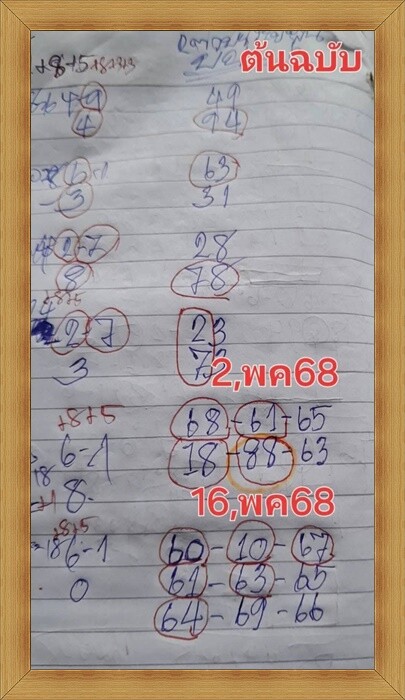 ต้นฉบับ
+8+5+8+3+3
64-9 49
4 94
6-1 63
3 31
2-7 28
8 78
+8+5
2-7 23
3 73
2,พค68
+8+5 68-61-65
6-1 18-88-63
+1 8-
16,พค68
+8+5
6-1 60-10-67
0 61-63-65
64-69-66